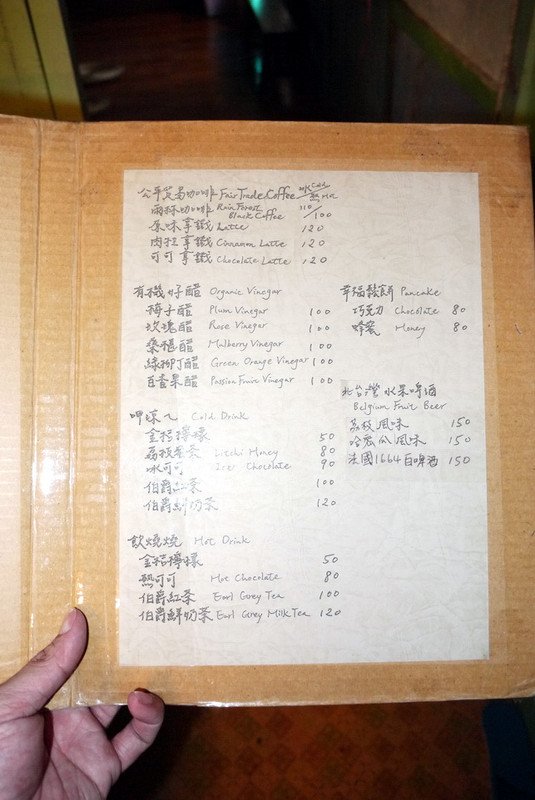 公平貿易咖啡 Fair Trade Coffee 冰 Cold/熱 Hot
雨林咖啡 Rain Forest Black Coffee 110/100
原味拿鐵 Latte 120
肉桂拿鐵 Cinnamon Latte 120
可可拿鐵 Chocolate Latte 120
有機好醋 Organic Vinegar
梅子醋 Plum Vinegar 100
玫瑰醋 Rose Vinegar 100
桑椹醋 Mulberry Vinegar 100
綠柳丁醋 Green Orange Vinegar 100
百香果醋 Passion Fruit Vinegar 100
呷涼ㄟ Cold Drink
金桔檸檬 50
荔枝蜜茶 Litchi Honey 80
冰可可 Iced Chocolate 90
伯爵紅茶 100
伯爵鮮奶茶 120
飲燒燒 Hot Drink
金桔檸檬 50
熱可可 Hot Chocolate 80
伯爵紅茶 Earl Grey Tea 100
伯爵鮮奶茶 Earl Grey Milk Tea 120
幸福鬆餅 Pancake
巧克力 Chocolate 80
蜂蜜 Honey 80
北台灣水果啤酒
Belgium Fruit Beer
荔枝風味 150
哈密瓜風味 150
法國1664白啤酒 150